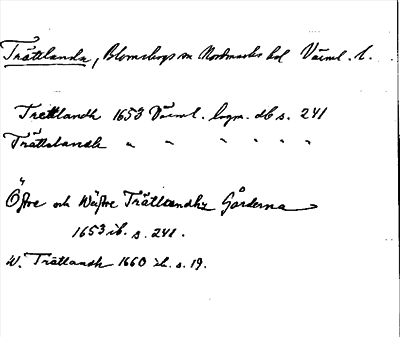 Trättlanda, Blomskogs sn Nordmarks hd Värml. l.
Trettlandh 1653 Värml. lagm. db s. 241
Trättelandh " " " " " "
Öfre och Wäftre Trättlandhz Gårderna
1653 ib. s. 241.
W. Trätlandh 1660 ib. s. 19.